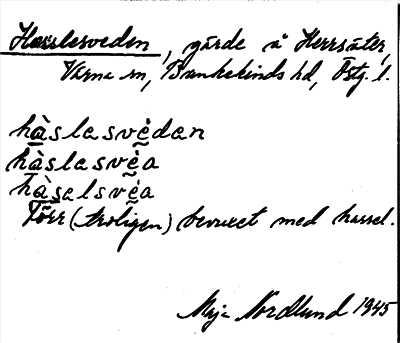 Hasslesveden, gärde å Herrsäter,
Värna sn, Bankekinds hd, Östg. l.
hàslasvèdan
hàslasvèa
hàsalsvèa
Förr (troligen) bevuxet med hassel.
Maja Nordlund 1945